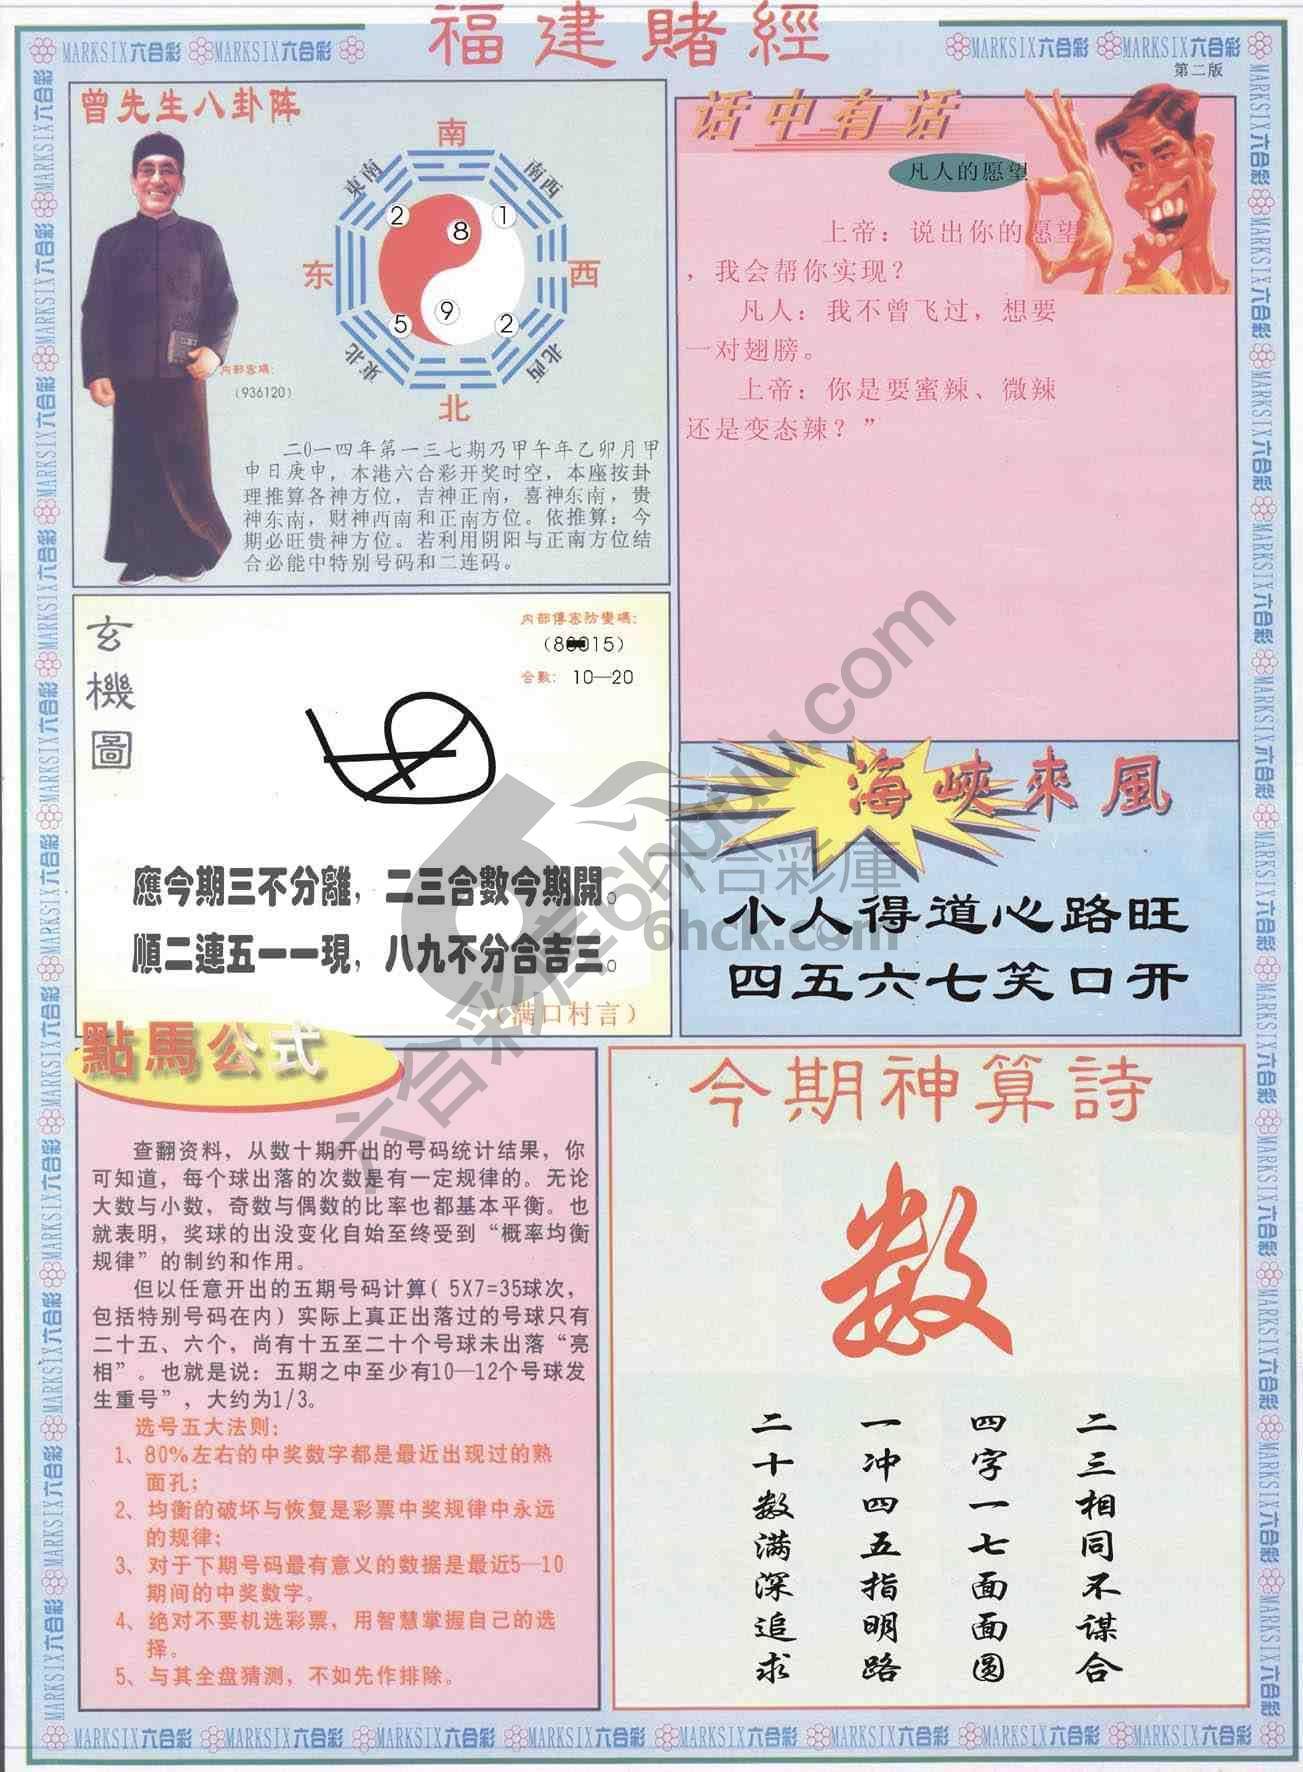 福建賭經
MARKSIX六合彩 MARKSIX六合彩
MARKSIX六合彩 MARKSIX六合彩
第二版
曾先生八卦阵
南
東南
南西
2
8
1
东
西
5
9
2
東北
北西
北
内部密碼:
(936120)
二0一四年第一三七期乃甲午年乙卯月甲
申日庚申，本港六合彩开奖时空，本座按卦
理推算各神方位，吉神正南，喜神东南，贵
神东南，财神西南和正南方位。依推算：今
期必旺贵神方位。若利用阴阳与正南方位结
合必能中特别号码和二连码。
话中有话
凡人的愿望
上帝：说出你的愿望
，我会帮你实现？
凡人：我不曾飞过，想要
一对翅膀。
上帝：你是要蜜辣、微辣
还是变态辣？”
玄機圖
内部傳密防變碼:
15)
合數: 10—20
應今期三不分離，二三合數今期開。
順二連五一一現，八九不分合吉三。
（满口村言）
海峽來風
小人得道心路旺
四五六七笑口开
點馬公式
查翻资料，从数十期开出的号码统计结果，你
可知道，每个球出落的次数是有一定规律的。无论
大数与小数，奇数与偶数的比率也都基本平衡。也
就表明，奖球的出没变化自始至终受到“概率均衡
规律”的制约和作用。
但以任意开出的五期号码计算( 5X7=35球次，
包括特别号码在内）实际上真正出落过的号球只有
二十五、六个，尚有十五至二十个号球未出落“亮
相”。也就是说：五期之中至少有10—12个号球发
生重号”，大约为1/3。
选号五大法则：
1、80%左右的中奖数字都是最近出现过的熟
面孔；
2、均衡的破坏与恢复是彩票中奖规律中永远
的规律；
3、对于下期号码最有意义的数据是最近5—10
期间的中奖数字。
4、绝对不要机选彩票，用智慧掌握自己的选
择。
5、与其全盘猜测，不如先作排除。
今期神算詩
数
二三相同不谋合
四字一七面面圆
一冲四五指明路
二十数满深追求
六合彩库6huuu.com
六合彩庫
6hck.com
MARKSIX六合彩 MARKSIX六合彩 MARKSIX六合彩 MARKSIX六合彩 MARKSIX六合彩 MARKSIX六合彩 MARKSIX六合彩 MARKSIX六合彩